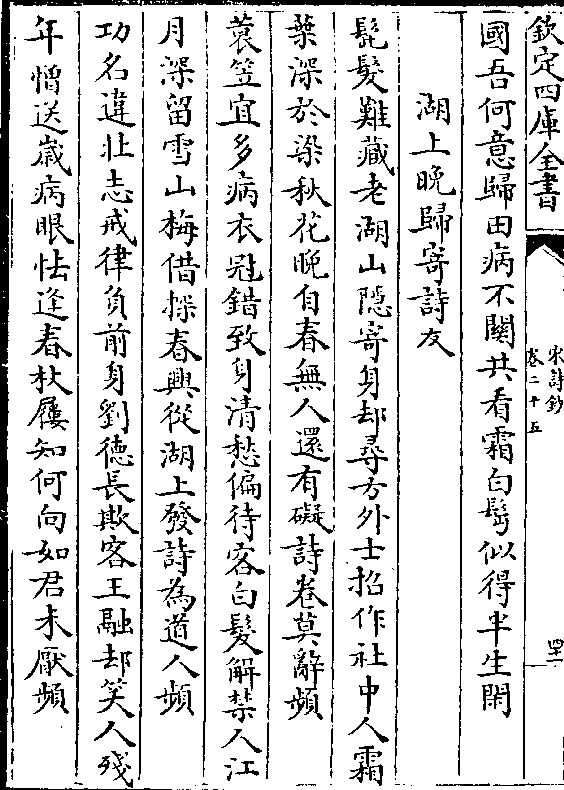 欽定四庫全書
宋詩鈔
卷二十五
四十一
國吾何意歸田病不關共看霜白髩似得半生閑
湖上晚歸寄詩友
髭髮難藏老湖山隱寄身却尋方外士招作社中人霜
葉深於染秋花晚自春無人還有礙詩卷莫辭頻
蓑笠宜多病衣冠錯致身清愁偏待客白髮解禁人江
月深留雪山梅借探春興從湖上發詩為道人頻
功名違壯志戒律負前身劉徳長欺客王融却笑人殘
年憎送嵗病眼怯逢春杖屨知何向如君未厭頻